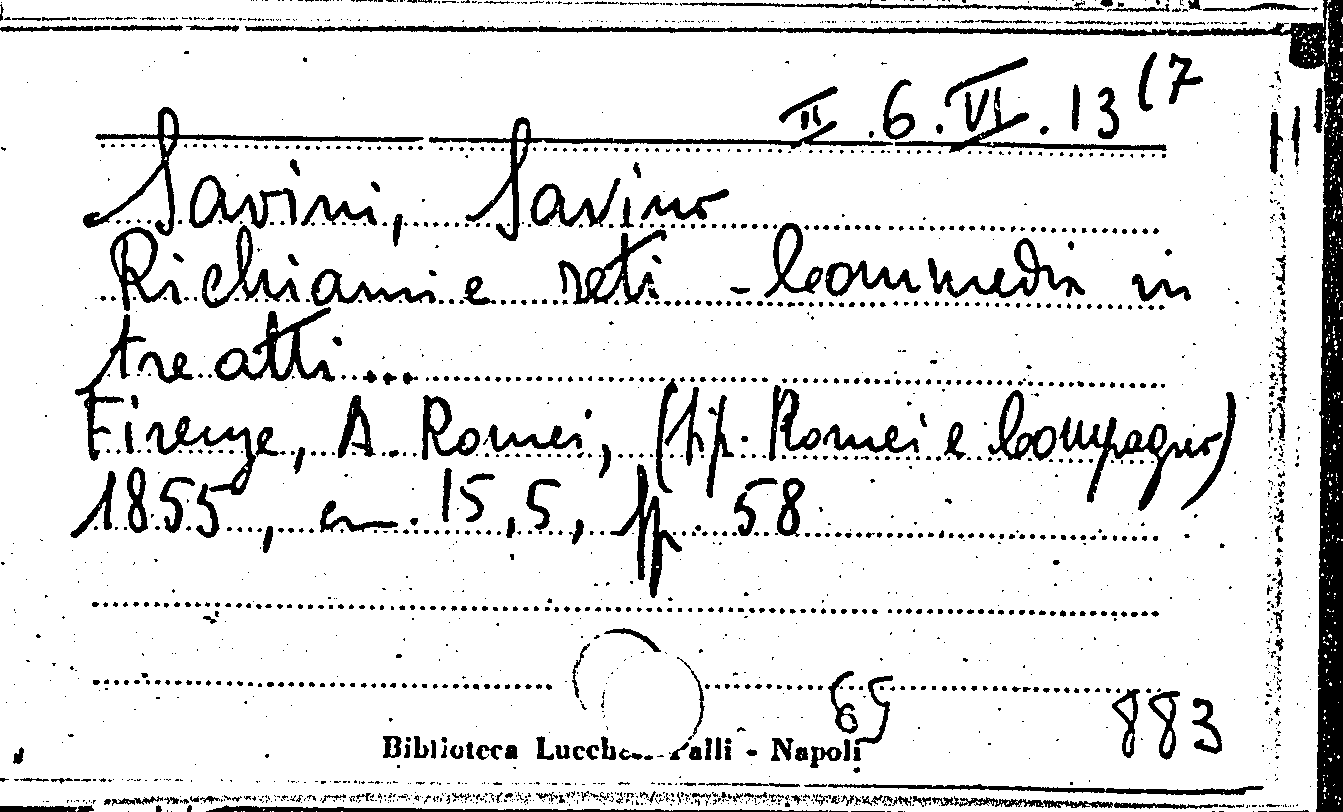 II .6.VI.13(7
Savini, Savino
Richiami e reti - Commedia in
tre atti...
Firenze, A. Romei, (tip. Romei e Compagni)
1855, cm. 15,5, pp. 58
65
883
Biblioteca Lucche Palli - Napoli